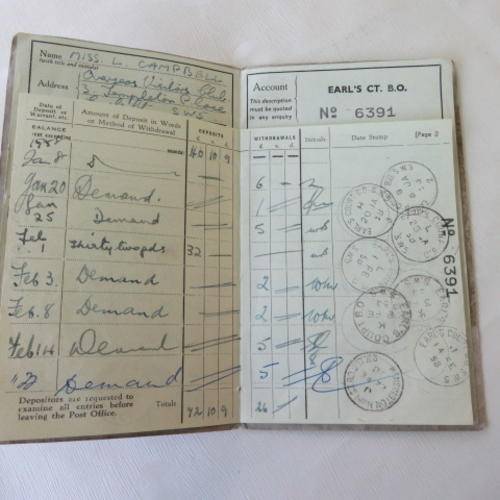 Name MISS. L. CAMPBELL
Address Overseas Visitors Club
3, Templeton Place
S W 5
Account EARL'S CT. B.O.
This description must be quoted in any enquiry
No 6391
Date of Deposit or Warrant, etc. Amount of Deposit in Words or Method of Withdrawal DEPOSITS
WITHDRAWALS Initials Date Stamp [Page 2
BALANCE
£ s. d.
Jan 8 40 10 9
6
Jan 20 Demand. 1
Jan 25 Demand 5
Feb 1 thirty two pds 32
Feb 3. Demand 2
Feb. 8 Demand 2
Feb 14 Demand 5
22 Demand 5
Depositors are requested to examine all entries before leaving the Post Office.
Totals 72 10 9 26
No 6391
EARL'S COURT B.O.
PADDINGTON